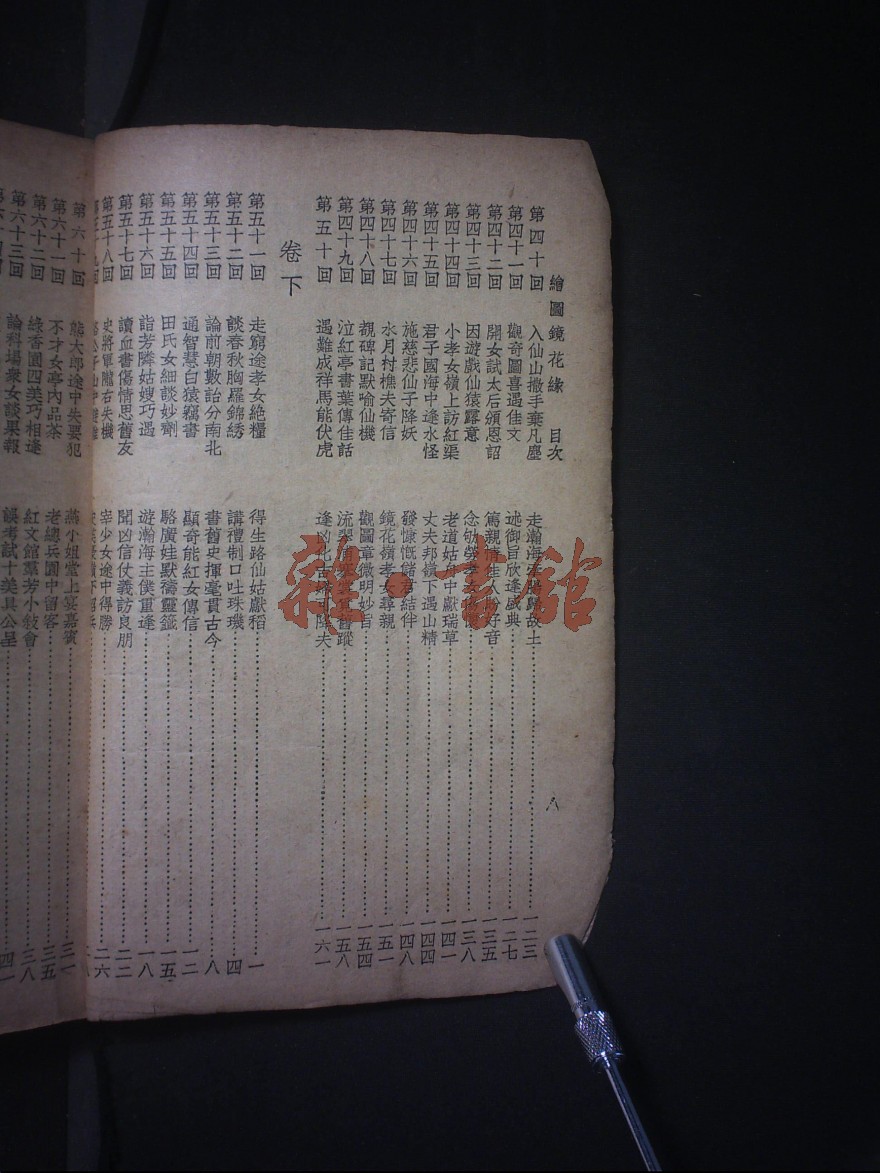 繪圖鏡花緣 目次
八
第四十回 入仙山撒手棄凡塵 走瀚海牢騷歸故土 一二三
第四十一回 觀奇圖喜遇佳文 述御旨欣逢盛典 一二七
第四十二回 開女試太后頒恩詔 篤親情佳人盼好音 一三五
第四十三回 因遊戲仙猿露意 念劬勞孝女 一三八
第四十四回 小孝女嶺上訪紅渠 老道姑舟中獻瑞草 一四一
第四十五回 君子國海中逢水怪 丈夫邦嶺下遇山精 一四四
第四十六回 施慈悲仙子降妖 發慷慨儲君結伴 一四八
第四十七回 水月村樵夫寄信 鏡花嶺孝女尋親 一五一
第四十八回 覩碑記默喻仙機 觀圖章微明妙旨 一五四
第四十九回 泣紅亭書葉傳佳話 流翠浦 舊蹤 一五八
第五十回 遇難成祥馬能伏虎 逢凶化吉 降夫 一六一
卷下
第五十一回 走窮途孝女絶糧 得生路仙姑獻稻 一
第五十二回 談春秋胸羅錦綉 講禮制口吐珠璣 四
第五十三回 論前朝數詒分南北 書舊史揮毫貫古今 八
第五十四回 通智慧白猿竊書 顯奇能紅女傳信 一二
第五十五回 田氏女細談妙劑 駱廣娃默禱靈籤 一五
第五十六回 詣芳隣姑嫂巧遇 遊瀚海主僕重逢 一八
第五十七回 讀血書傷情思舊友 聞凶信仗義訪良朋 二二
第五十八回 史將軍隴右失機 宰少女途中得勝 二六
第六十回 熊大郎途中失要犯 燕小姐堂上宴嘉賓 三一
第六十一回 不才女亭內品茶 老總兵園中留客 三五
第六十二回 綠香園四美巧相逢 紅文館羣芳小敘會 三八
第六十三回 論科場衆女談果報 誤考試十美具公呈 四一
雜·書館